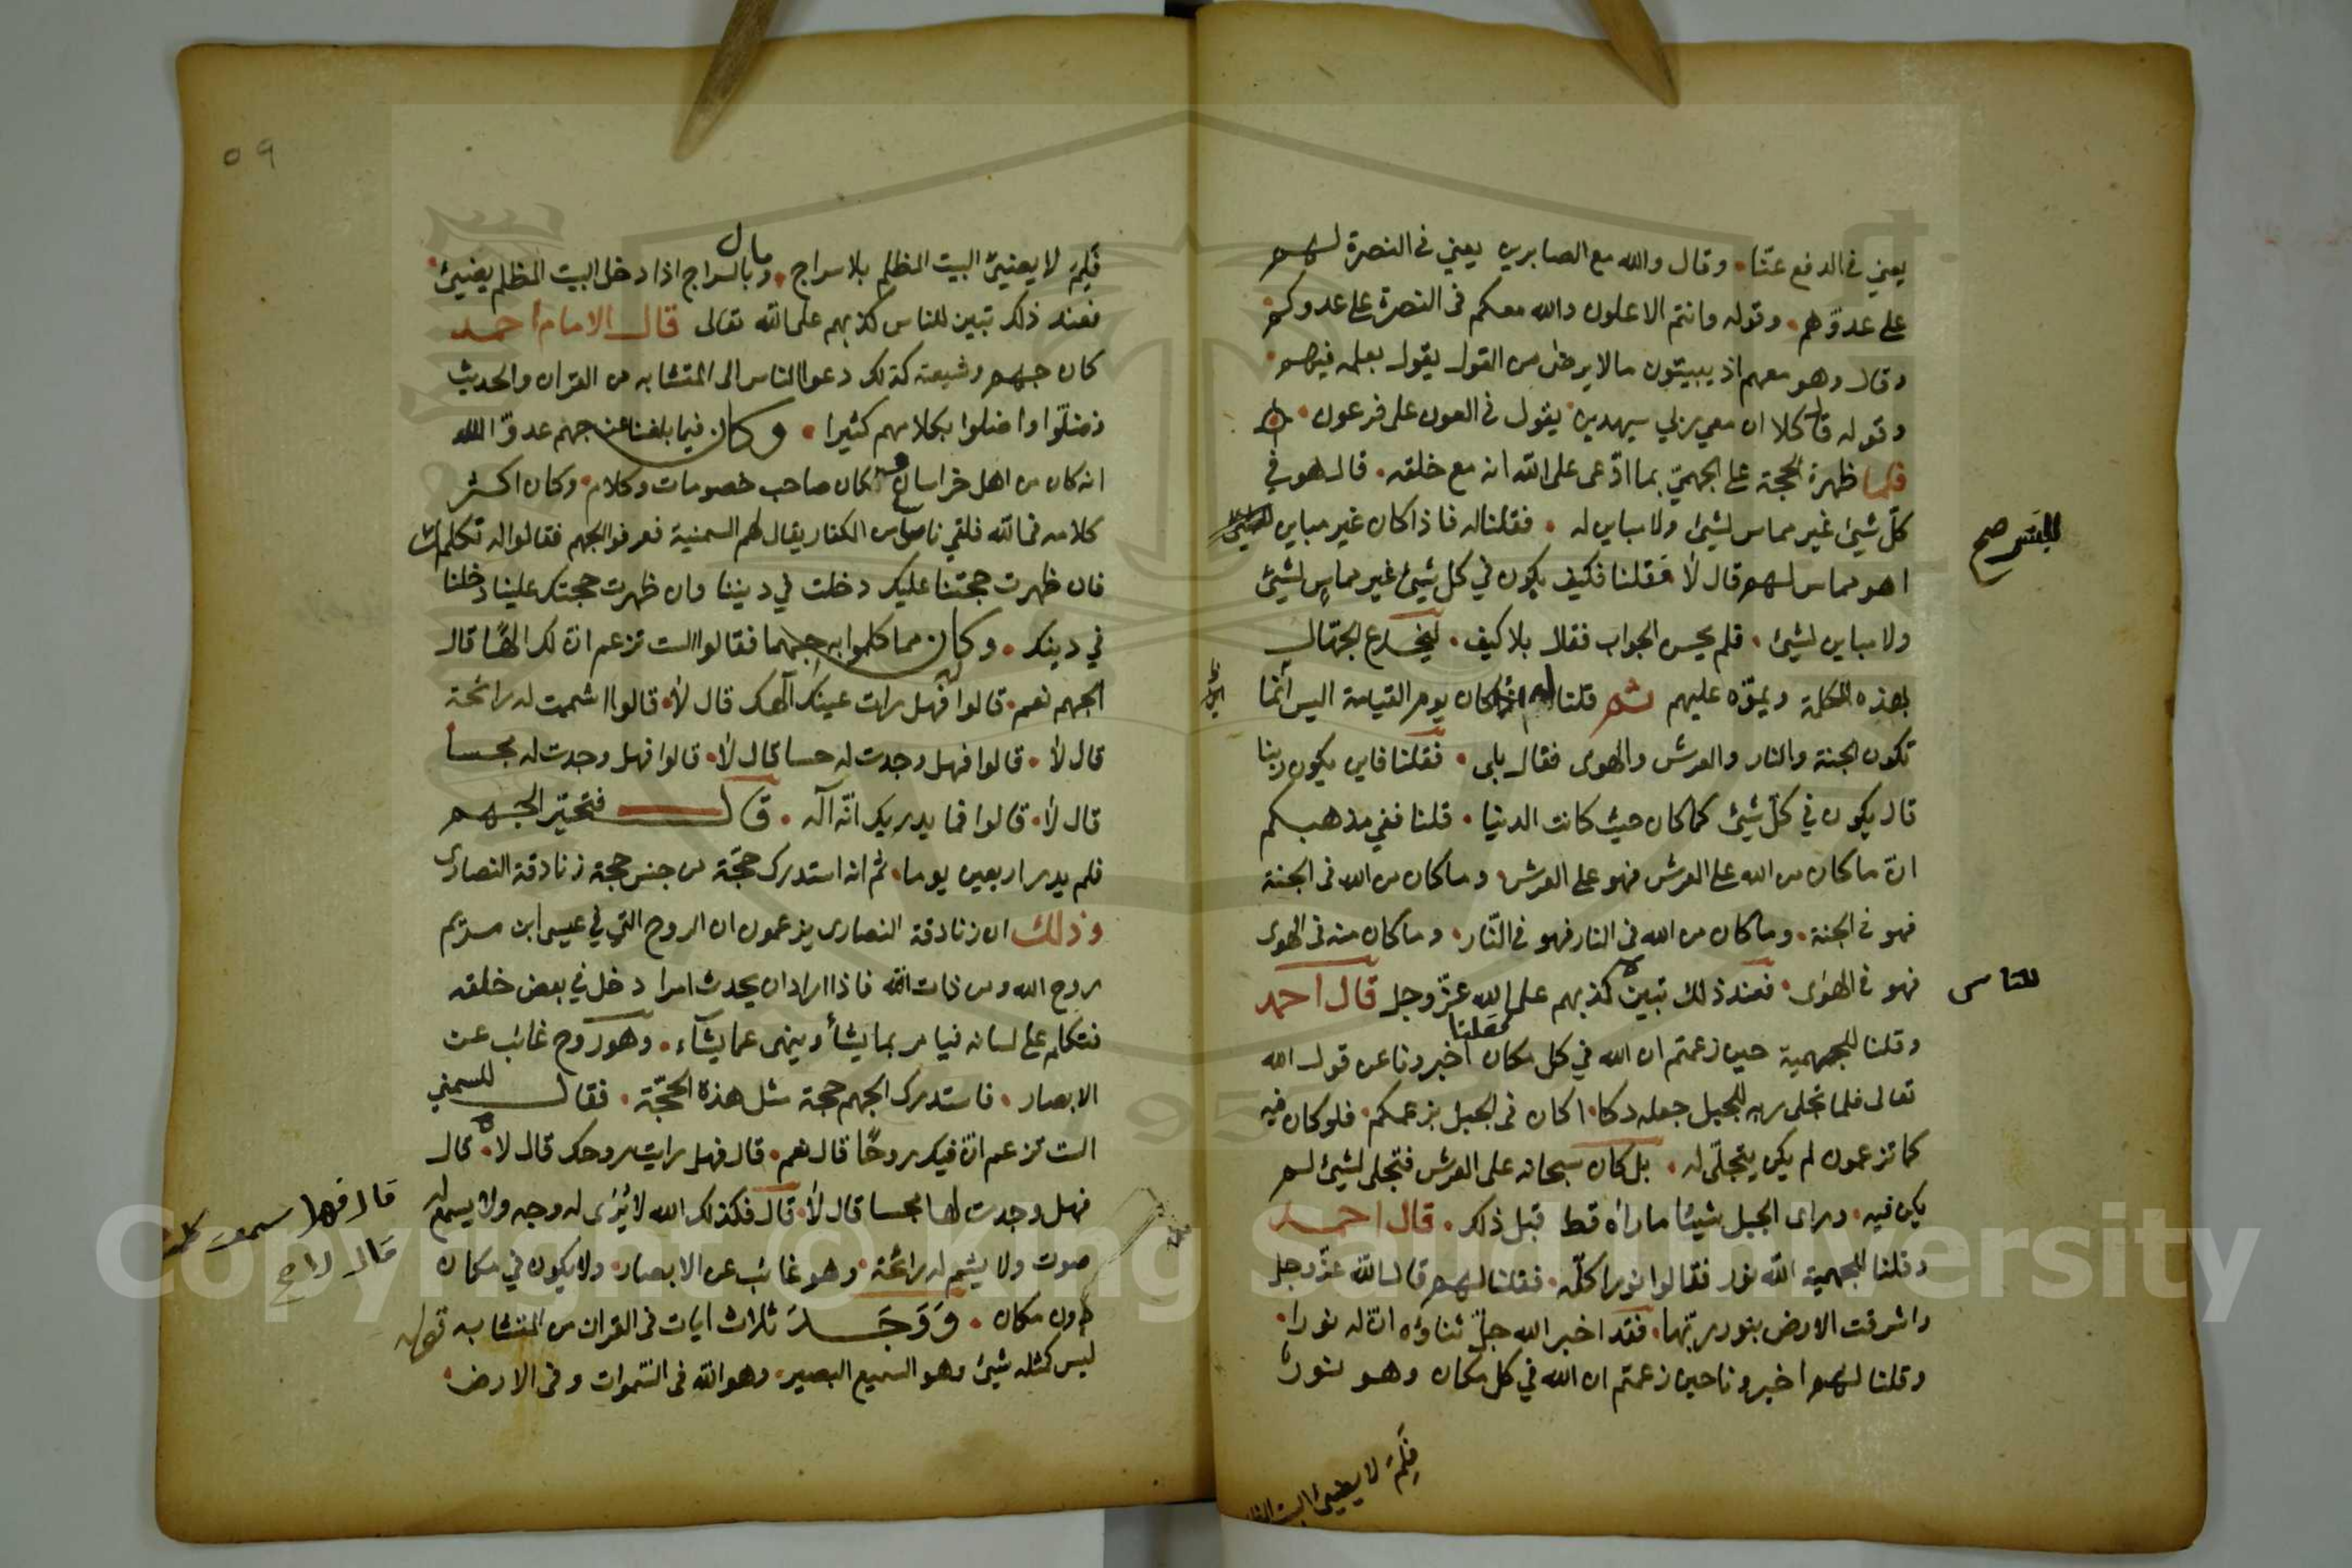 يعني في الدفع عنّا. وقال والله مع الصابرين يعني في النصرة لهم
على عدوّهم. وقوله وانتم الاعلون والله معكم في النصرة على عدوكم.
وقال وهو معهم اذ يبيتون مالا يرضى من القول يقول بعلمه فيهم.
وقوله قال كلا ان معي ربي سيهدين يقول في العون على فرعون.
فلما ظهرة الحجة على الجهميّ بما ادّعى على الله انه مع خلقه. قال هو في
كلّ شيئ غير مماس لشيئ ولا مباين له. فقلنا له فاذا كان غير مباين
للبشر صح
اهو مماس لهم قال لا فقلنا فكيف يكون في كل شيئ غير مماس لشيئ
ولا مباين لشيئ. فلم يحسن الجواب فقال بلا كيف. ليخدع الجهّال
بهذه الكلمة ويموّه عليهم ثم قلنا له اذا كان يوم القيامة اليس انما
تكون الجنة والنار والعرش والهوى فقال بلى. فقلنا فاين يكون ربنا
قال يكون في كلّ شيئ كما كان حيث كانت الدنيا. قلنا ففي مذهبكم
انّ ما كان من الله على العرش فهو على العرش. وما كان من الله في الجنة
فهو في الجنة. وما كان من الله في النار فهو في النّار. وما كان منه في الهوى
فهو في الهوى. فعند ذلك تبين كذبهم على الله عزّ وجل قال احمد
للناس
وقلنا للجهمية حين زعمتم ان الله في كل مكان فقلنا اخبرونا عن قول الله
تعالى فلما تجلى ربه للجبل جعله دكا. اكان في الجبل بزعمكم. فلو كان فيه
كما تزعمون لم يكن يتجلّى له. بل كان سبحانه على العرش فتجلى لشيئ لم
يكن فيه. وراى الجبل شيئا ما راه قط قبل ذلك. قال احمد
وقلنا للجهمية الله نور فقالوا نور كلّه. فقلنا لهم قال الله عزّ وجل
واشرقت الارض بنور ربّها. فقد اخبر الله جلّ ثناؤه انّ له نورا.
وقلنا لهم اخبرونا حين زعمتم ان الله في كل مكان وهو نور
فلم لا يضيئ البيت
٥٩
فلم لا يضيئ البيت المظلم بلا سراج. وما بال السراج اذا دخل البيت المظلم يضيئ.
فعند ذلك تبين للناس كذبهم على الله تعالى قال الامام احمد
كان جهم وشيعته كذلك دعوا الناس الى المتشابه من القران والحديث
فضلّوا واضلوا بكلامهم كثيرا. وكان فيما بلغنا عن جهم عدوّ الله
انه كان من اهل خراسان وكان صاحب خصومات وكلام. وكان اكثر
كلامه في الله فلقي ناس من الكفار يقال لهم السمنية فعرفوا الجهم فقالوا له تكلمك
فان ظهرت حجتنا عليك دخلت في ديننا وان ظهرت حجتك علينا دخلنا
في دينك. وكان مما كلموا به جهما فقالوا الست تزعم انّ لك الهًا قال
الجهم نعم. قالوا فهل رات عينك الهك قال لا. قالوا اشممت له رائحة
قال لا. قالوا فهل وجدت له حسا قال لا. قالوا فهل وجدت له مجسا
قال لا. قالوا فما يدريك انّه اله. قال فتحيّر الجهم
فلم يدر اربعين يوما. ثم انه استدرك حجّة من جنس حجة زنادقة النصارى
وذلك ان زنادقة النصارى يزعمون ان الروح التي في عيسى ابن مريم
روح الله ومن ذات الله فاذا اراد ان يحدث امرا دخل في بعض خلقه
فتكلم على لسانه فيامر بما يشأ وينهى عما يشآء. وهو روح غائب عن
الابصار. فاستدرك الجهم حجة مثل هذه الحجّة. فقال للسمني
الست تزعم انّ فيك روحًا قال نعم. قال فهل رايت روحك قال لا. قال
فهل وجدت لها مجسا قال لا. قال فكذلك الله لا يُرى له وجه ولا يسمع له
قال فهل سمعت كلامه
قال لا صح
صوت ولا يشم له رائحة. وهو غائب عن الابصار. ولا يكون في مكان
دون مكان. وَوَجَدَ ثلاث ايات في القران من المتشابه قوله
ليس كمثله شيئ وهو السميع البصير. وهو الله في السّموات وفي الارض.
Copyright © King Saud University